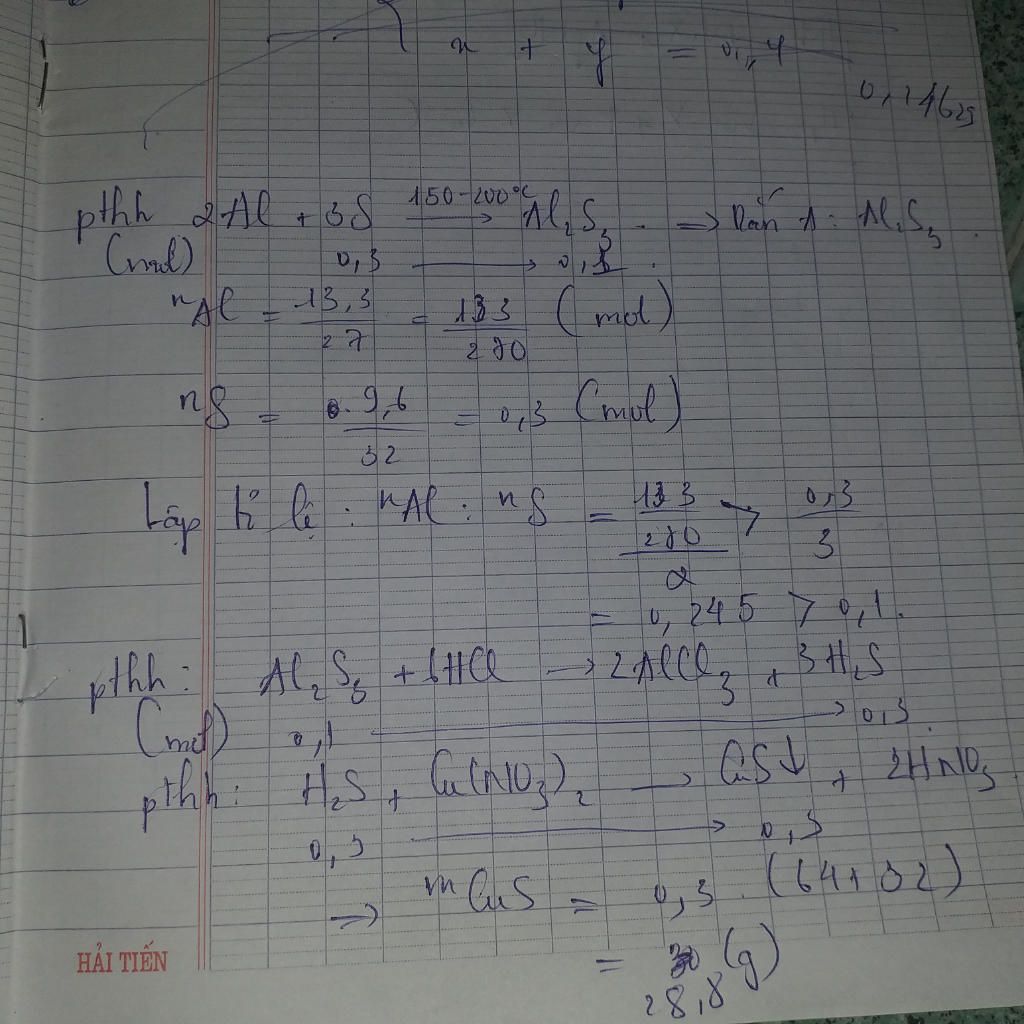 x + y = 0,4
0,24629
pthh 2Al + 3S 150-200°C → Al₂S₃. => Rắn A: Al₂S₃.
(mol) 0,3 → 0,1.
nAl = 13,3/27 = 133/270 (mol)
nS = 9,6/32 = 0,3 (mol)
Lập tỉ lệ: nAl : nS = 133/270/2 > 0,3/3
= 0,245 > 0,1.
pthh: Al₂S₃ + 6HCl → 2AlCl₃ + 3H₂S
(mol) 0,1 → 0,3.
pthh: H₂S + Cu(NO₃)₂ → CuS↓ + 2HNO₃
0,3 → 0,3
=> mCuS = 0,3 . (64+32)
= (g)
28,8
HẢI TIẾN